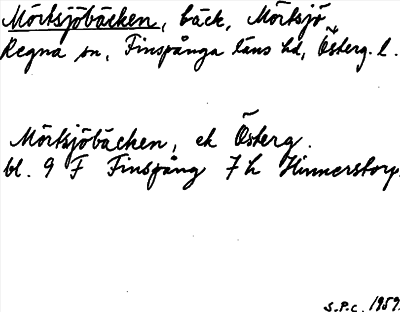 Mörtsjöbäcken, bäck, Mörtsjö,
Regna sn, Finspånga läns hd, Österg. l.
Mörtsjöbäcken, ek Österg.
bl. 9 F Finspång 7 h Hinnerstorp.
S.P.C. 1959.